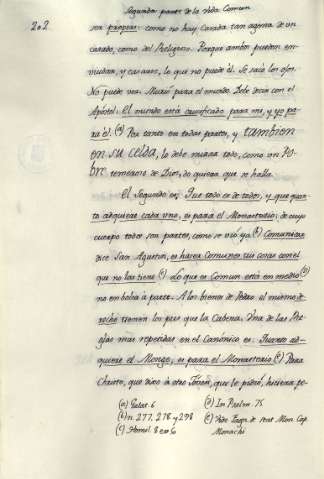 Segunda parte de la vida Comun
202
ser propios: como no hay Casada tan agena de un
casado, como del Religioso. Porque ambos pueden en-
viudar, y casarse, lo que no puede èl. Se sacò los ojos.
No puede ver. Muriò para el mundo. Debe decir con el
Apostol: El mundo està crucificado para mi, y yo pa-
ra èl. (a) Por tanto en todas partes, y tambien
en su celda, lo debe mirar todo, como un Po-
bre temeroso de Dios, do quiera que se halla.
El Segundo es: Que todo es de todos, y que quan-
to adquiere cada uno, es para el Monasterio; de cuyo
cuerpo todos son partes, como se viò ya (b) Comunicar
dice San Agustin, es hacer Comunes sus cosas con el
que no las tiene (c) Lo que es Comun està en medio (d)
no en bolsa à parte. A los bienes de Pedro el mismo de-
recho tienen los pies que la Cabeza. Una de las Re-
glas mas repetidas en el Canonico es: Quanto ad-
quiere el Monge, es para el Monasterio (e) Para
Christo, que dixo à otro Joven, que le pidiò, hiciera pe-
(a) Galat. 6
(b) n. 277, 278 y 298
(c) Homil. 8
(d) In Psalm. 75
(e) Vide Fagn. de stat. Mon. Cap.
Monachi